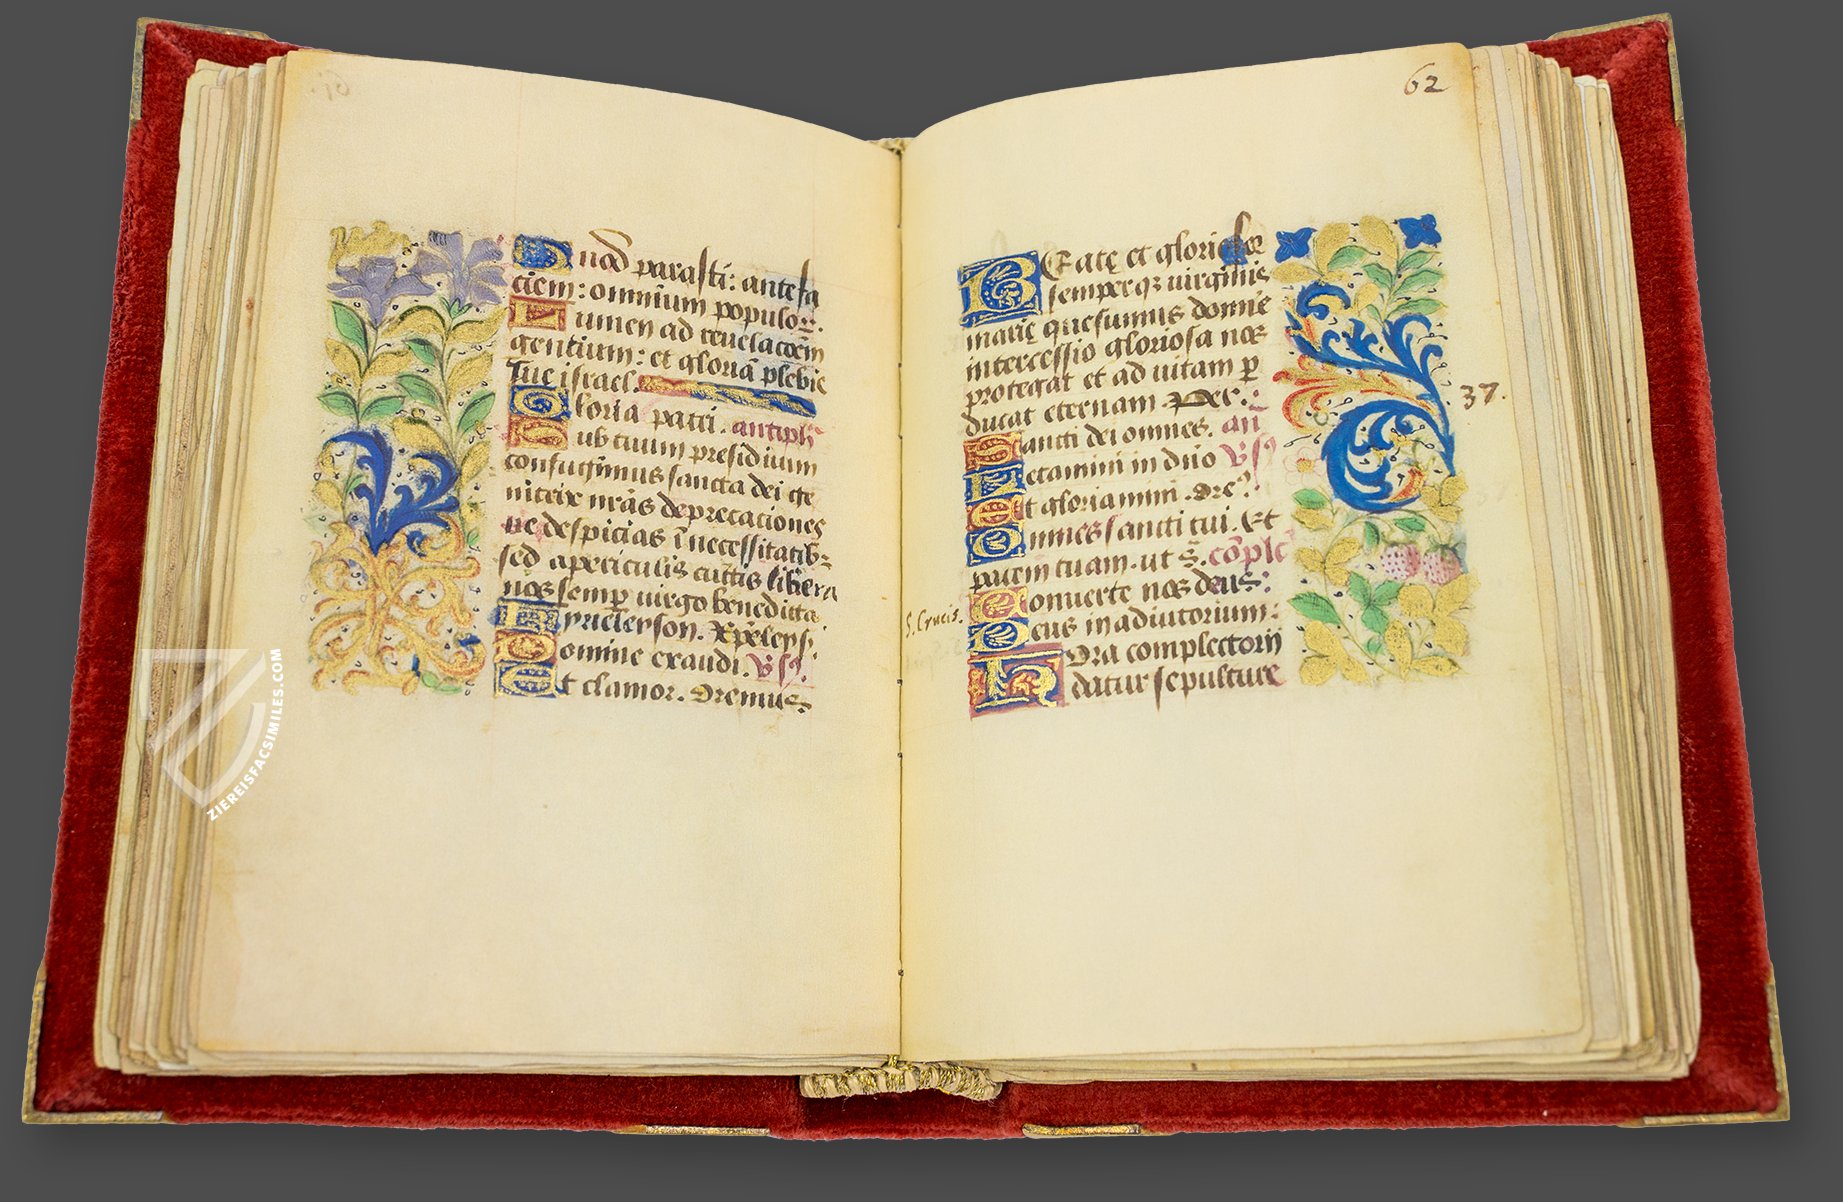 Quod parasti: ante fa
ciem: omnium populoꝝ.
Lumen ad reuelacōem
gentium: et gloriā plebis
tue israel.
Gloria patri. antiph̄
Sub tuum presidium
confugimus sancta dei ge
nitrix nrās deprecationes
ne despicias ī necessitatibꝫ
sed a periculis cūttis libera
nos semꝑ uirgo benedicta
Kyrieleyson. Xp̄eleyſ.
Domine exaudi. Vsꝰ.
Et clamor. Oremus.
ZIEREISFACSIMILES.COM
62
BEatę et gloriose
semperqꝫ uirginis
marię quesumus domne
intercessio gloriosa nos
protegat et ad uitam ꝑ
ducat eternam. Per.
Sancti dei omnes. an̄
Letamini in dn̄o Vsꝰ
Et gloriamini. Oreꝰ.
Omnes sancti tui. Et
pacem tuam. ut S. cōplē
Conuerte nos deus:
Deus in adiutorium:
HOra complectorij
datur sepulture
S. Crucis.
37.